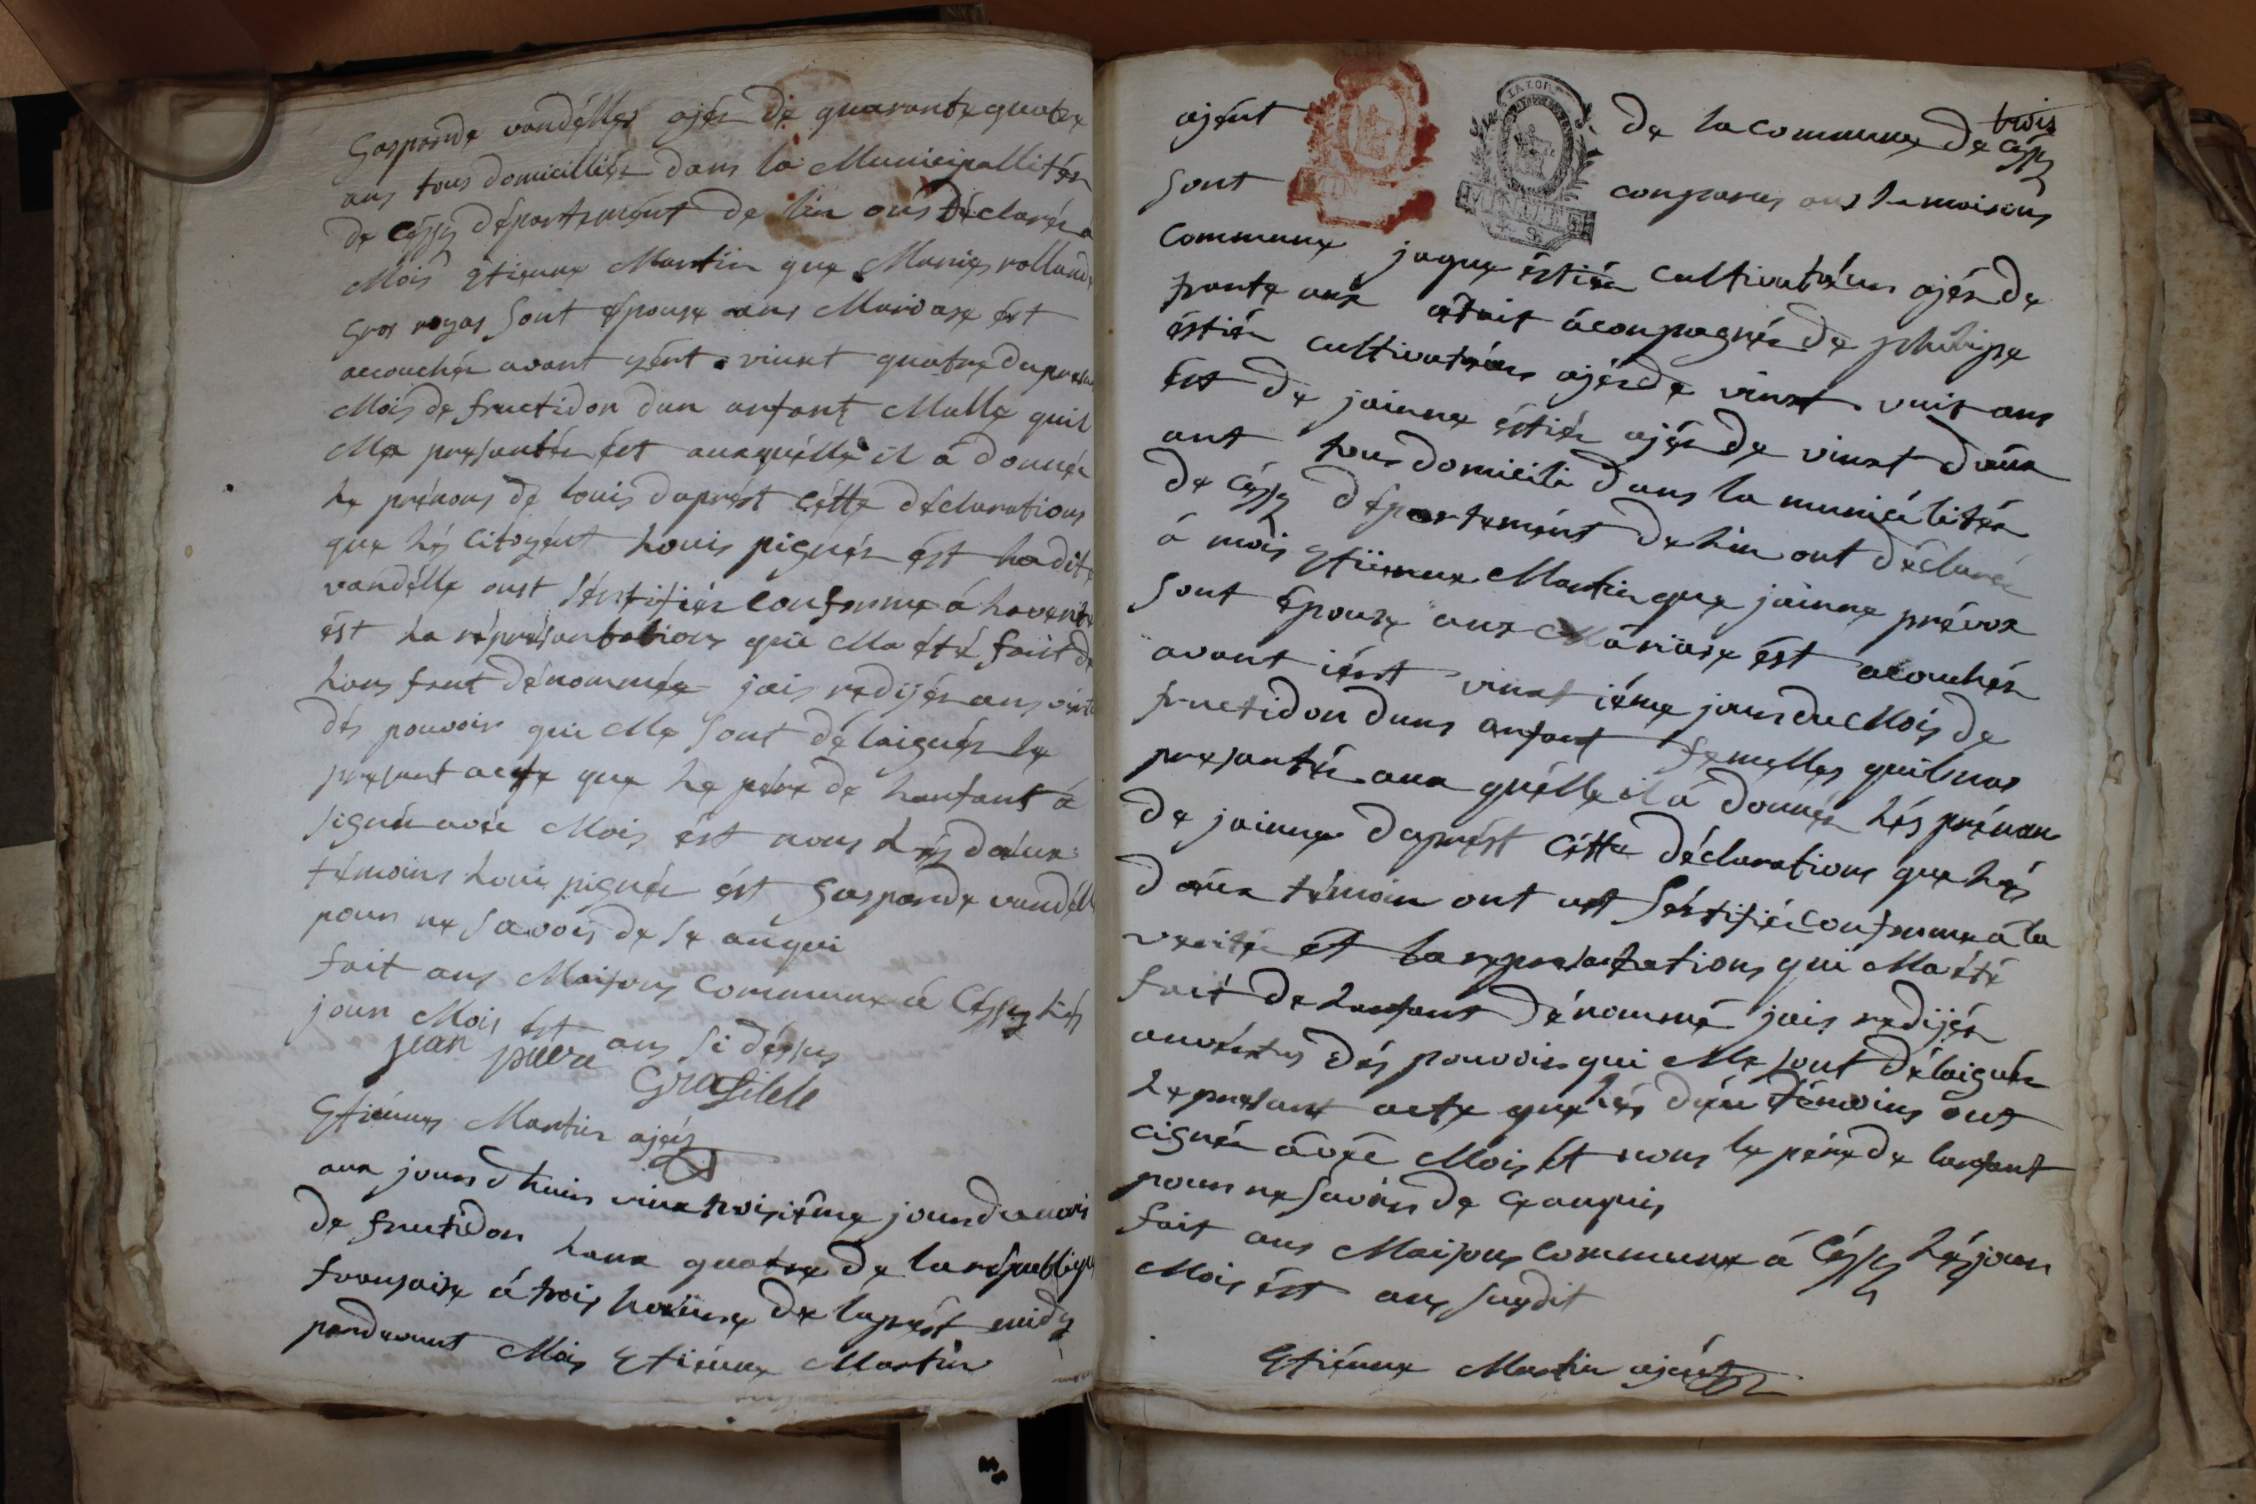 Gasparde vandélles ajér de quarante quatre
ans tous domicilliér dans la Municipallitér
de Céssy département de lin oús déclarér a
Mois étienne Martin que Marie rolland
Gros sont épouse ans Mariaxe ért
accouchér avant yért vinxt quatre du present
Mois de fructidor dun anfant Malle quil
Ma presantér ést auxquélle il à donnér
le prénons de louis daprést cétte déclarations
que lés citoyént louis pignér ést ladite
vandélle oust sértifiér conforme á la verité
ést la réprésantations qui Ma été fait de
lans fant dénommée jais redijér ans vertu
dés pouvoir qui Me sont délaiguér le
presant acte que le pére de lanfant á
signér avéc Mois ést nous lés déux
témoins loui pignér ést Gasparde vandélle
pour ne savois de se anqui
fait ans Maisons Commune á Céssy lés
jour Mois ést ans si déssus
jean pierre
Etiénne Martin ajént
aux jours dhuis vinxtroisiéme jours du mois
de fructidor lans quatre de la républiques
fransaise á trois heeure de laprést midy
pardevant Mois Etiénne Martin
trois
ajént de la commune de Céssy
sont comparus ans la maisons
commune jaque éstiér cultivatéur ajér de
trante ans acompagnér de philipe
éstiér cultivatéur ajér de vinxt vuit ans
ést de jainne éstiér ajér de vinxt déux
ant tous domicili dans la municilitér
de Céssy département de lin ont déclaréé
á mois Etiénne Martin que jainne prévox
sont épouse anx Mariaxe ést acouchér
avant iért vinxt iéme jours du Mois de
fructidor duns anfant femelles quil mas
presantér aux quélle il á donnér lés prénon
de jainne daprést cétte déclarations que lés
déux témoin ont ust sértifiér conforme á la
veritér ét la represantations qui Ma été
fait de lanfant dénommé jais redijér
anvértus dés pouvoir qui Me sont délaiguér
le presant acte que lés déu témoins ont
cignér ávéc Mois ét nous le pére de lanfant
pour ne savoir de ce anquis
fait ans Maisons commune á Céssy lés jour
Mois ést ans susdit
Etiénne Martin ajént